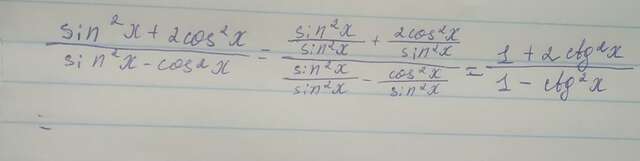 (sin²x + 2cos²x)/(sin²x - cos²x) = (sin²x/sin²x + 2cos²x/sin²x)/(sin²x/sin²x - cos²x/sin²x) = (1 + 2ctg²x)/(1 - ctg²x)
=